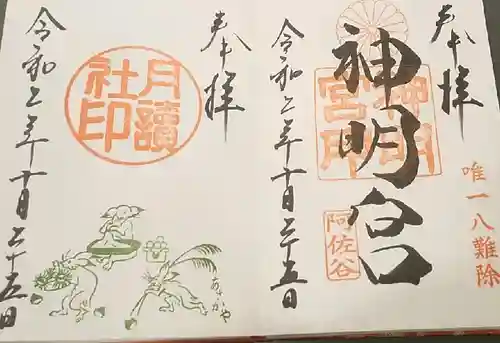 奉拝
唯一八難除
神明宮
神明宮印
阿佐ヶ谷
令和二年十月二十五日
奉拝
月讀社印
令和二年十月二十五日
あさがや